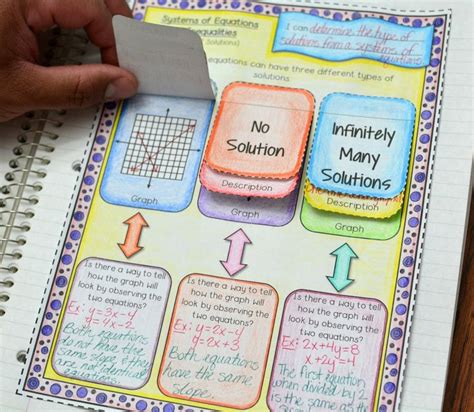 Systems of Equations
Inequalities
Solutions)
I can determine the type of
solutions from a systems of
equations.
equations can have three different types of
solutions.
Graph
No
Solution
Description
Graph
Infinitely
Many
Solutions
Description
Graph
Is there a way to tell
how the graph will
look by observing the
two equations?
Ex: y=3x-4
y=4x-2
Both equations
do not have the
same slope
are not identical
equations.
Is there a way to tell
how the graph will
look by observing the
two equations?
Ex: y=2x-4
y=2x+3
Both equations
have the same
slope.
Is there a way to tell
how the graph will
look by observing the
two equations?
Ex: 2x+4y=8
x+2y=4
The first equation
when divided by 2
is the same as the